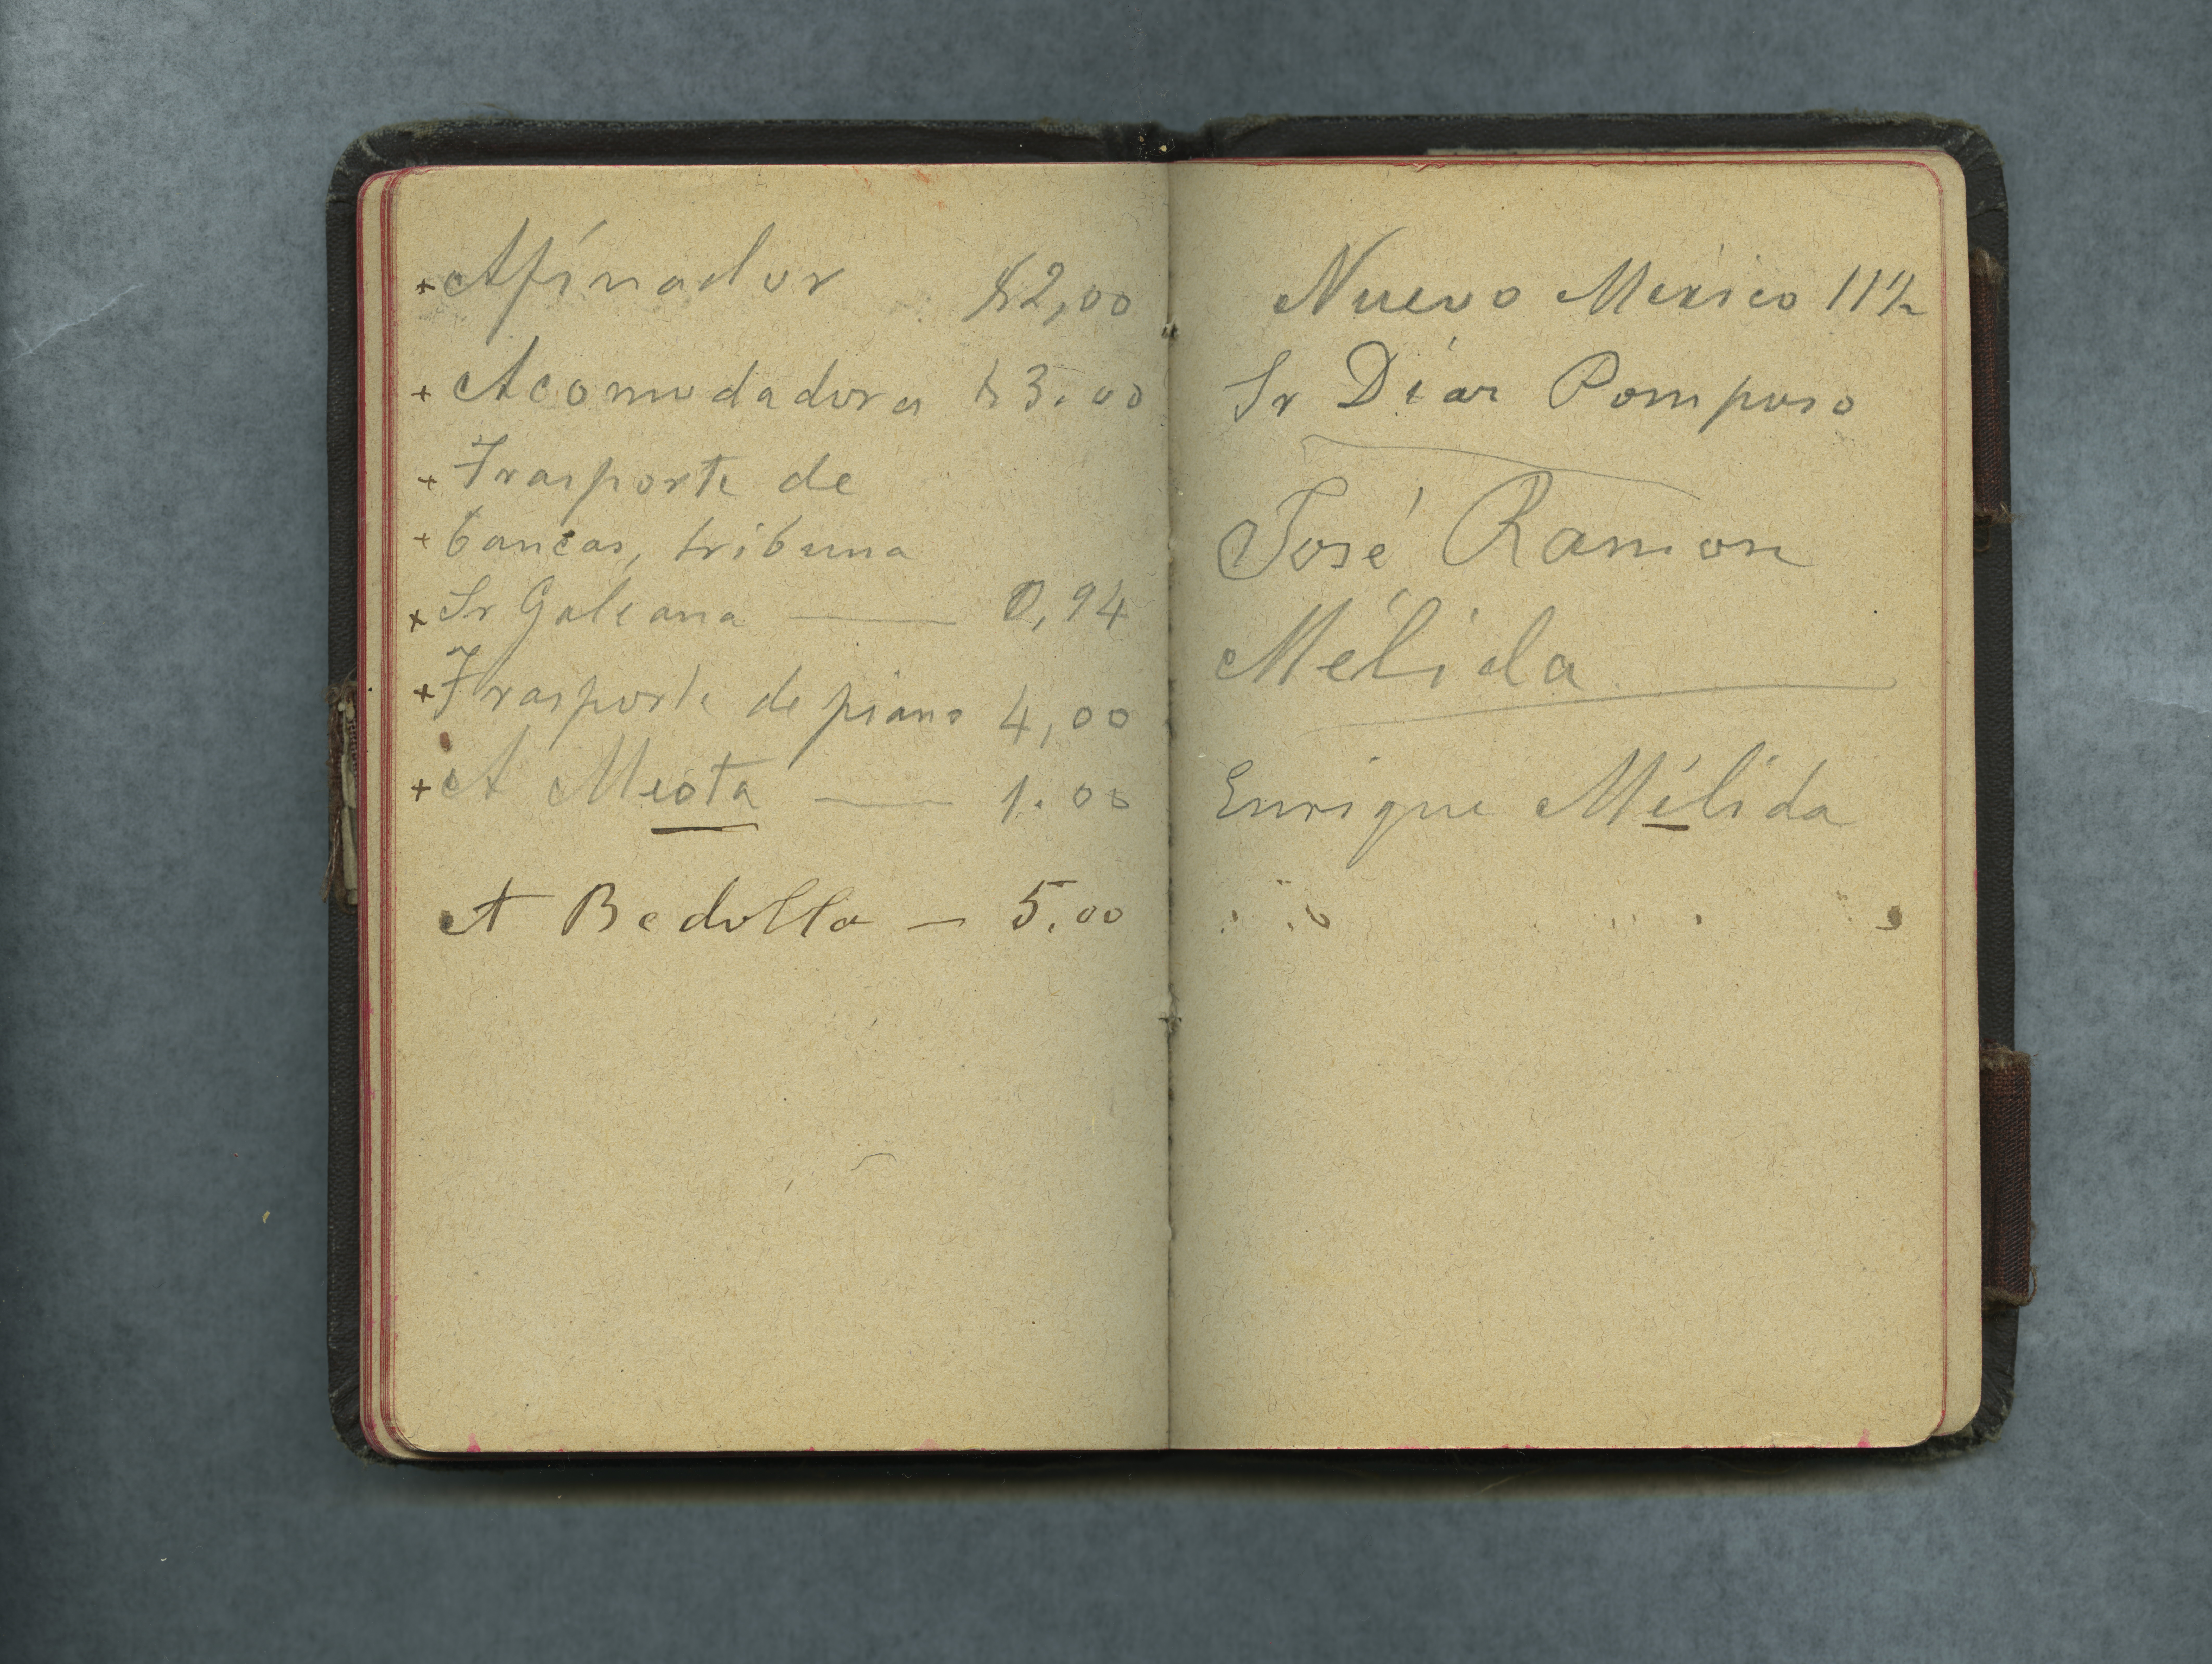 + Afinador $2,00
+ Acomodadora $3.00
+ Trasporte de
+ bancas, tribuna
+ Sr Galeana — 0,94
+ Trasporte de piano 4,00
+ A Meota — 1.00
A Bedolla — 5.00
Nuevo Mexico
Sr Díaz Pomposo
José Ramon
Mélida
Enrique Mélida